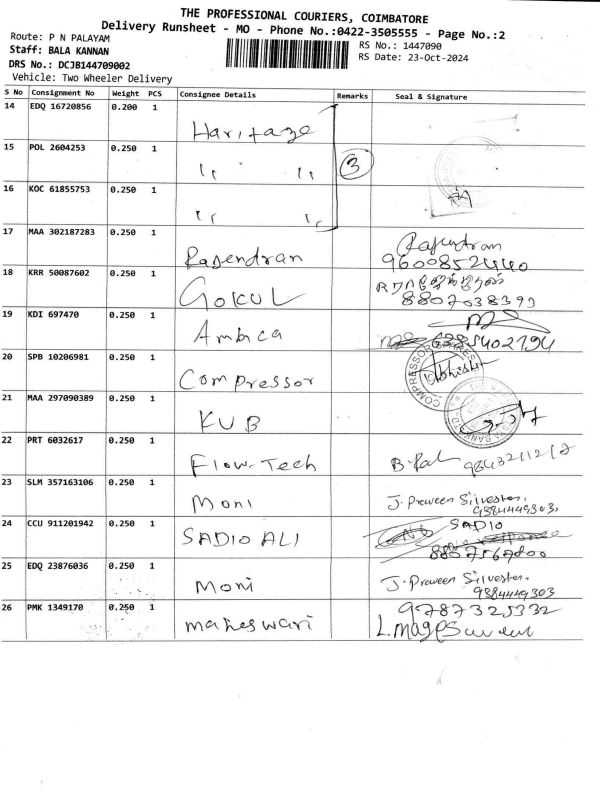 THE PROFESSIONAL COURIERS, COIMBATORE
Delivery Runsheet - MO - Phone No.:0422-3505555 - Page No.:2
Route: P N PALAYAM
RS No.: 1447090
Staff: BALA KANNAN
RS Date: 23-Oct-2024
DRS No.: DCJB144709002
Vehicle: Two Wheeler Delivery
S No Consignment No Weight PCS Consignee Details Remarks Seal & Signature
14 EDQ 16720856 0.200 1
Haritage
15 POL 2604253 0.250 1
" " 3
16 KOC 61855753 0.250 1
" "
17 MAA 302187283 0.250 1
Rajendran Rajendran
9600852440
18 KRR 50087602 0.250 1
GOKUL
8807038399
19 KDI 697470 0.250 1
Ambica 6385402194
20 SPB 10206981 0.250 1
Compressor
COMPRESSOR
21 MAA 297090389 0.250 1
KUB
22 PRT 6032617 0.250 1
Flow-Tech
23 SLM 357163106 0.250 1
Moni J. Praveen Silvester.
9384449303.
24 CCU 911201942 0.250 1
SADIO ALI SADIO
8807567800
25 EDQ 23876036 0.250 1
Moni J. Praveen Silvester.
9384449303
26 PMK 1349170 0.250 1
9787325332
maheswari